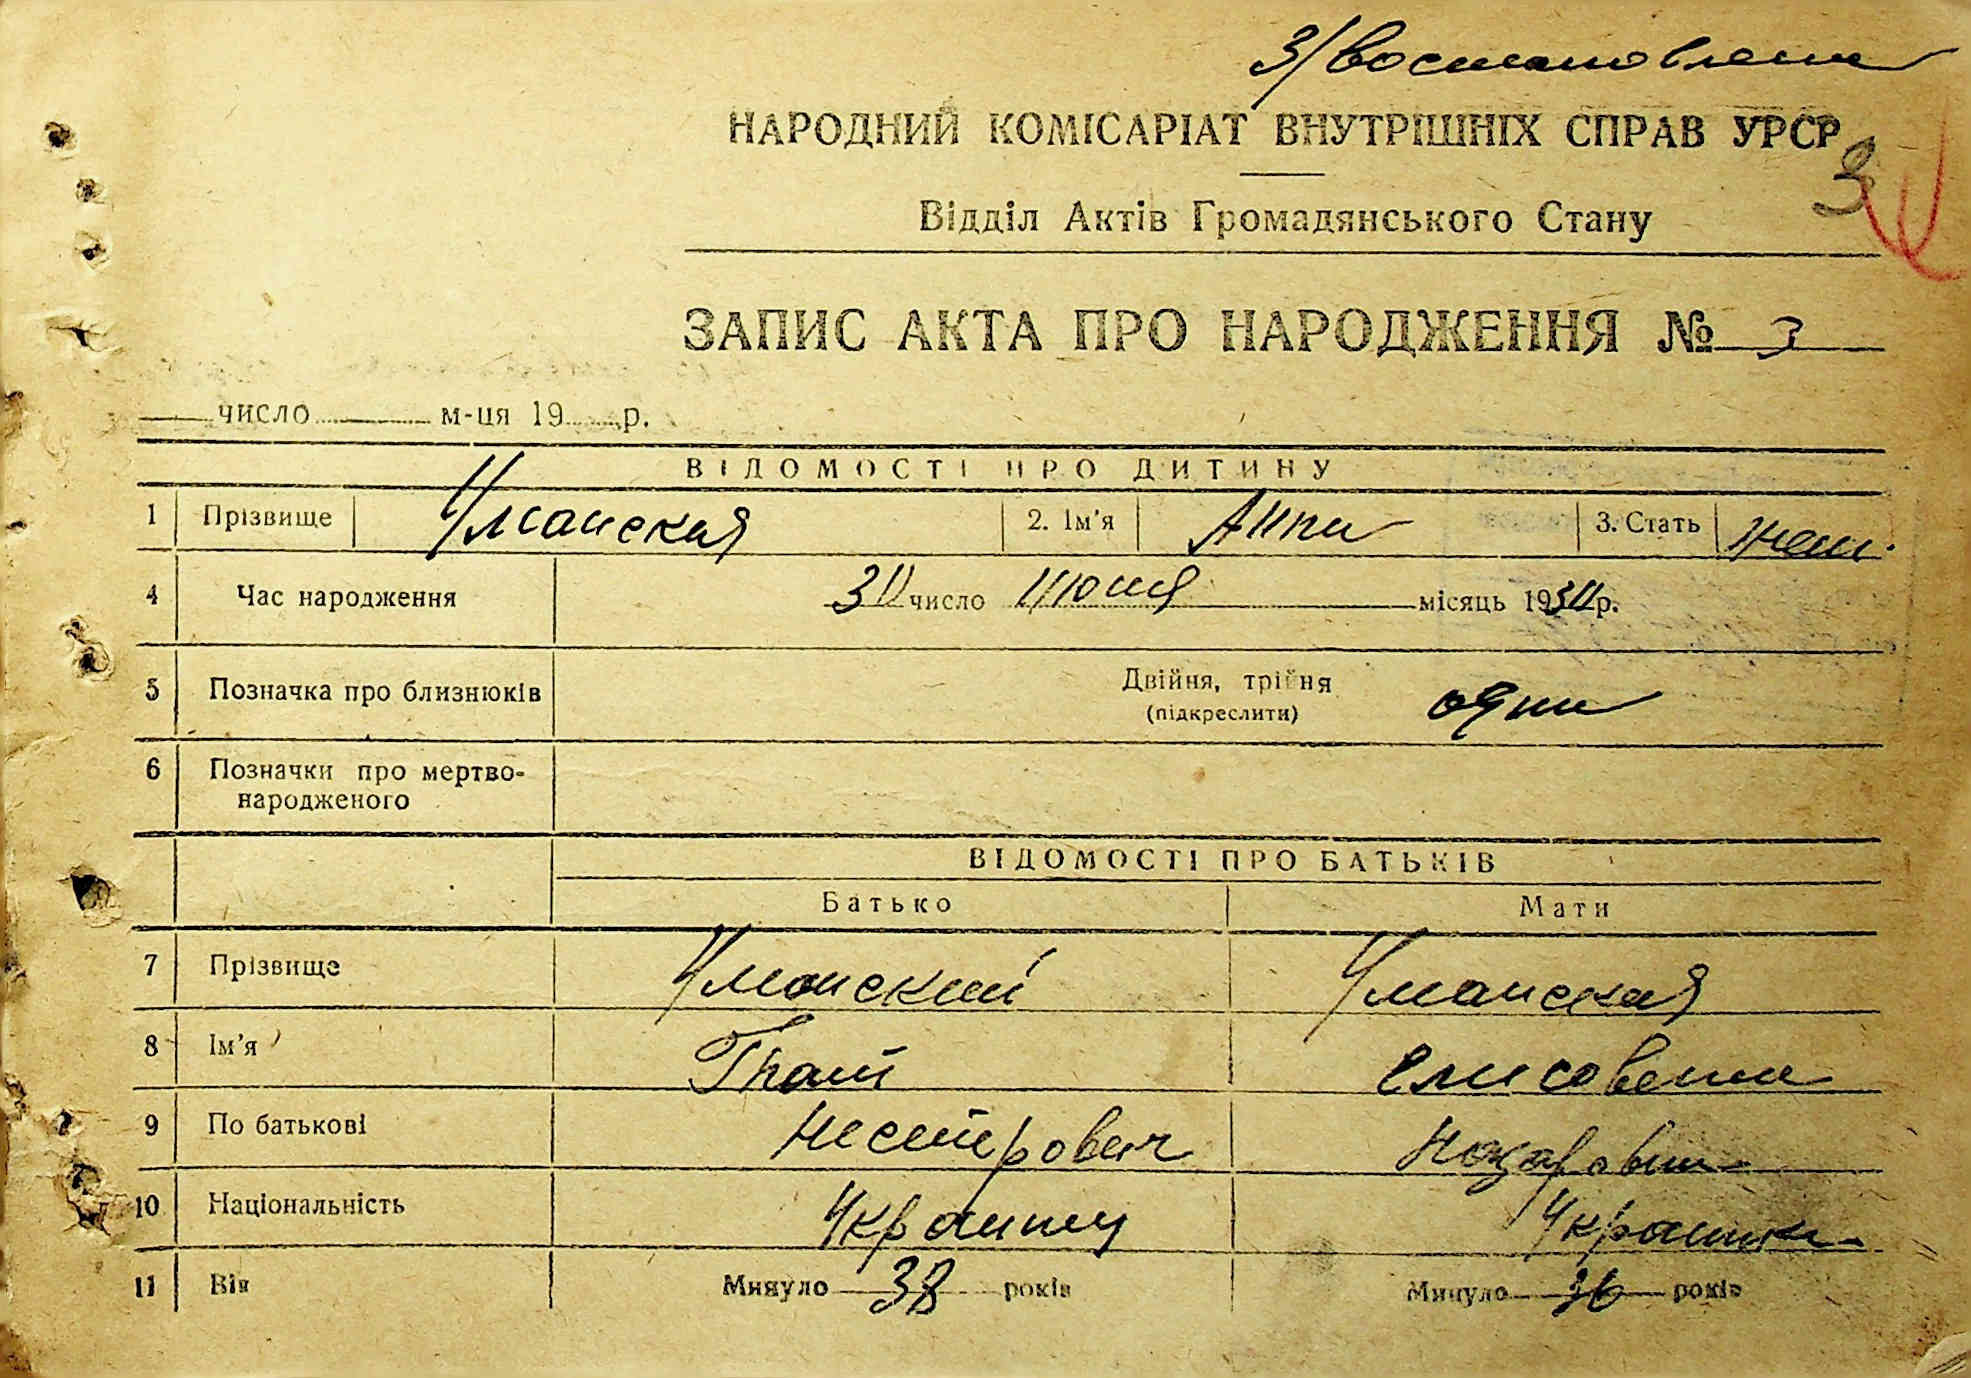 З/востановлени
НАРОДНИЙ КОМІСАРІАТ ВНУТРІШНІХ СПРАВ УРСР
3
Відділ Актів Громадянського Стану
ЗАПИС АКТА ПРО НАРОДЖЕННЯ № 3
число м-ця 19 р.
ВІДОМОСТІ ПРО ДИТИНУ
1 Прізвище Уманская 2. Ім'я Анна 3. Стать жен.
4 Час народження 30 число Июня місяць 1930 р.
5 Позначка про близнюків Двійня, трійня (підкреслити) одни
6 Позначки про мертво-
народженого
ВІДОМОСТІ ПРО БАТЬКІВ
Батько Мати
7 Прізвище Уманский Уманская
8 Ім'я Гнат Елисовета
9 По батькові Нестерович
10 Національність Украинец Украинка
11 Вік Минуло 38 років Минуло 36 років